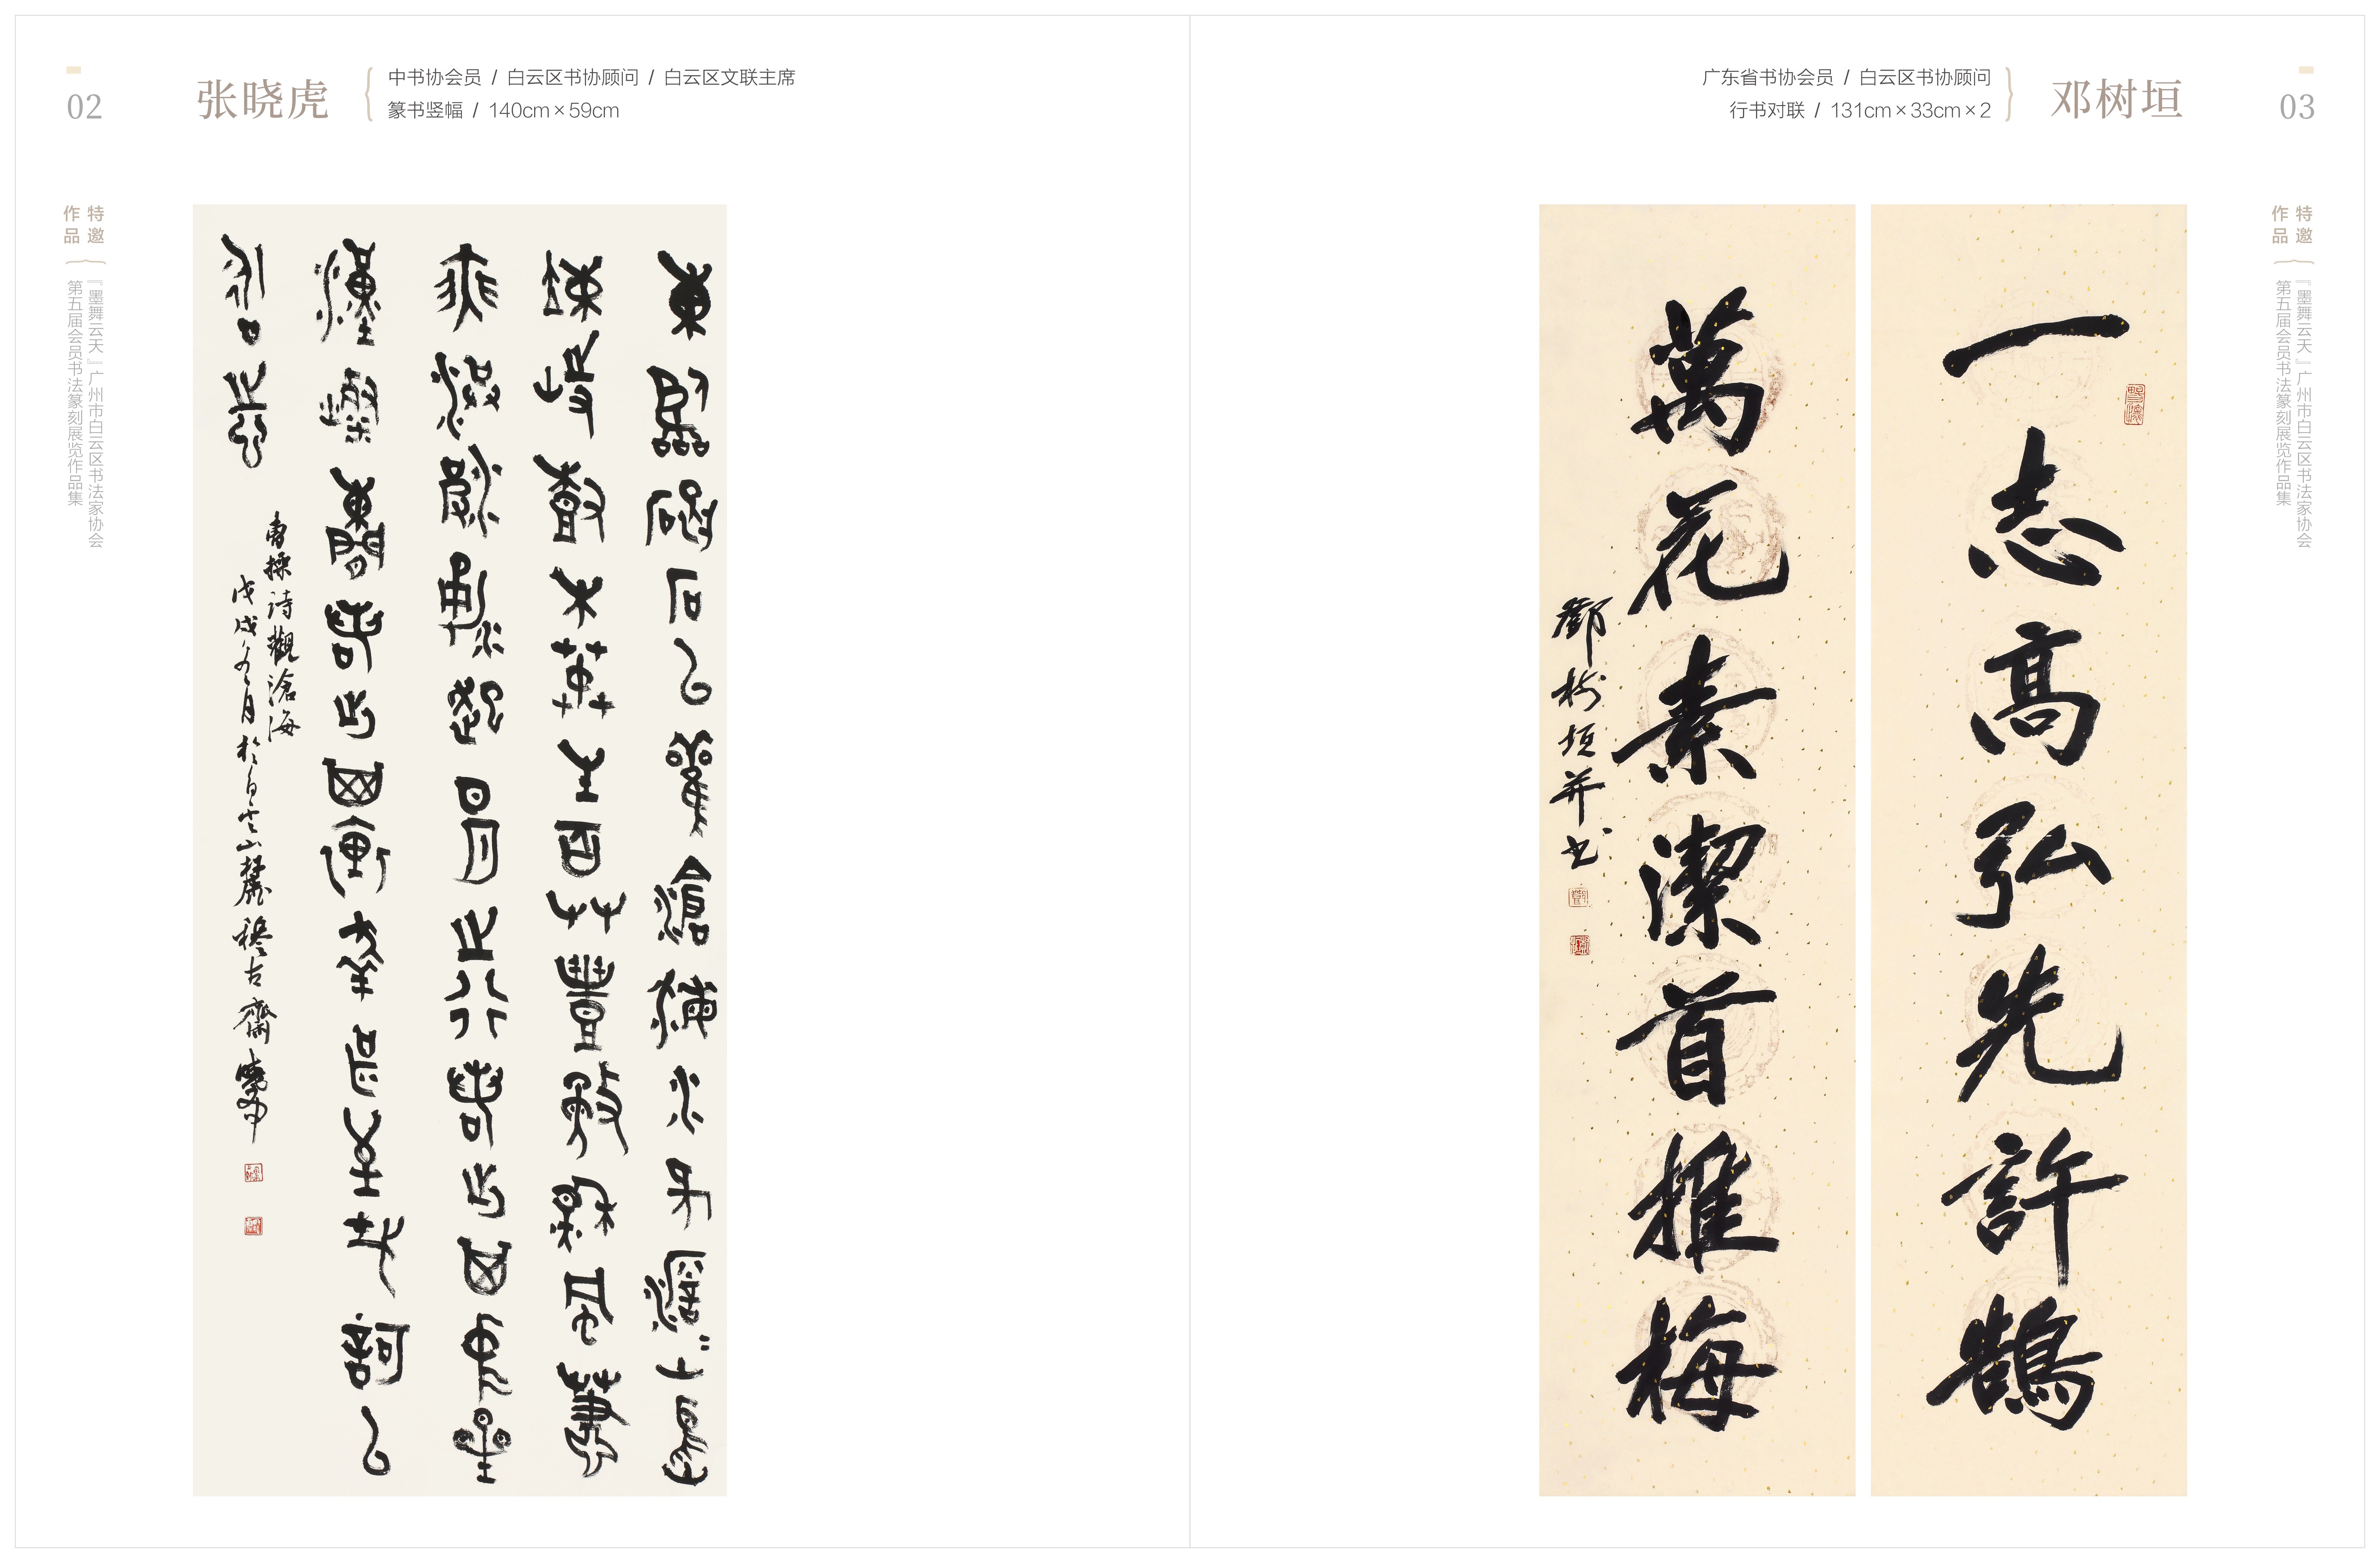 02
张晓虎
中书协会员 / 白云区书协顾问 / 白云区文联主席
篆书竖幅 / 140cm×59cm
特邀
作品
『墨舞云天』广州市白云区书法家协会
第五届会员书法篆刻展览作品集
東臨碣石以觀滄海水何澹〻山島
竦峙樹木叢生百草豐茂秋風蕭
瑟洪波涌起日月之行若出其中星
漢燦爛若出其裏幸甚至哉歌以
詠志
曹操詩觀滄海
戊戌冬月於白雲山麓穆古齋曉虎
广东省书协会员 / 白云区书协顾问
行书对联 / 131cm×33cm×2
邓树垣
03
特邀
作品
『墨舞云天』广州市白云区书法家协会
第五届会员书法篆刻展览作品集
一志高弘先許鵠
萬花素潔首推梅
鄧樹垣并书